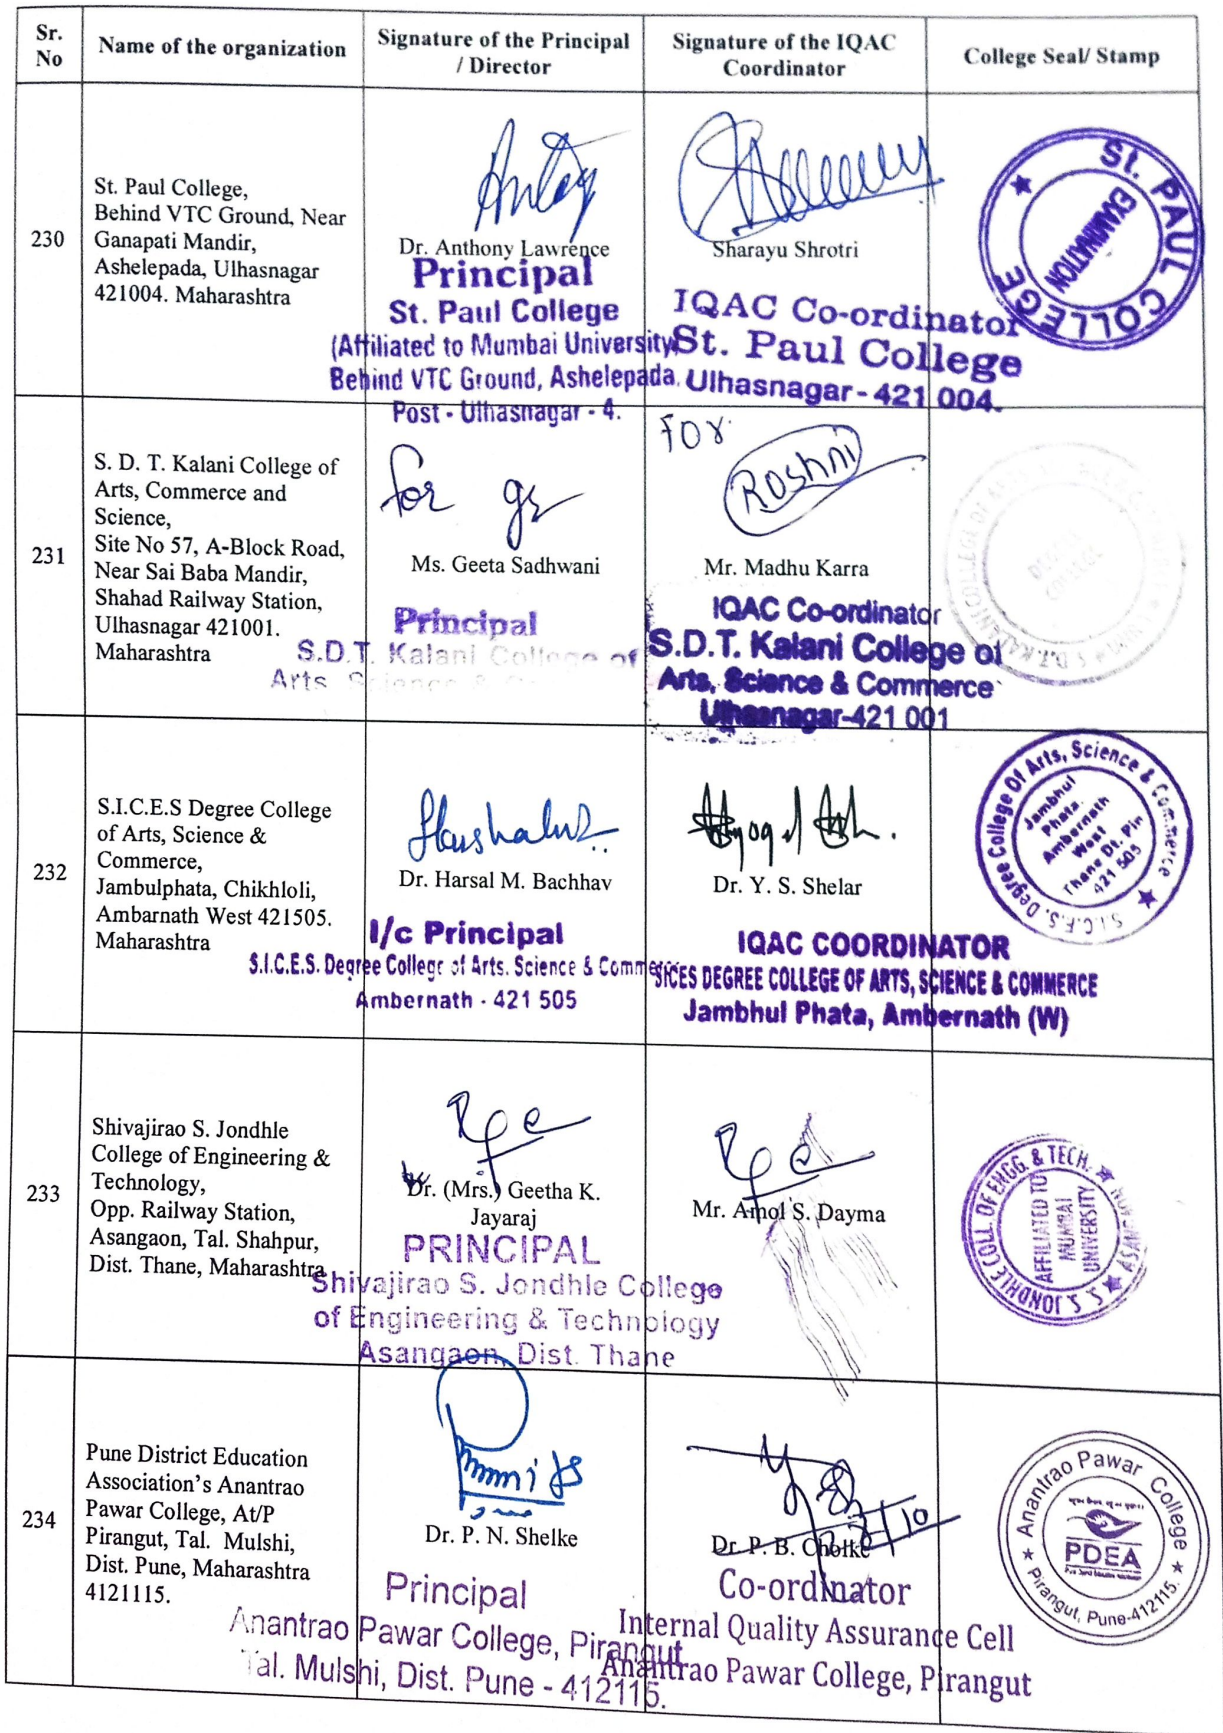 Sr. No
Name of the organization
Signature of the Principal / Director
Signature of the IQAC Coordinator
College Seal/ Stamp
230
St. Paul College,
Behind VTC Ground, Near
Ganapati Mandir,
Ashelepada, Ulhasnagar
421004. Maharashtra
Dr. Anthony Lawrence
Principal
St. Paul College
(Affiliated to Mumbai University)
Behind VTC Ground, Ashelepada.
Post - Ulhasnagar - 4.
Sharayu Shrotri
IQAC Co-ordinator
St. Paul College
Ulhasnagar - 421 004.
St. PAUL COLLEGE
EXAMINATION
231
S. D. T. Kalani College of
Arts, Commerce and
Science,
Site No 57, A-Block Road,
Near Sai Baba Mandir,
Shahad Railway Station,
Ulhasnagar 421001.
Maharashtra
for gs
Ms. Geeta Sadhwani
Principal
S.D.T. Kalani College of
Arts Science &
FOR
Roshni
Mr. Madhu Karra
IQAC Co-ordinator
S.D.T. Kalani College of
Arts, Science & Commerce
Ulhasnagar-421 001
S.D.T. KALANI COLLEGE OF
DEGREE
COLLEGE
232
S.I.C.E.S Degree College
of Arts, Science &
Commerce,
Jambulphata, Chikhloli,
Ambarnath West 421505.
Maharashtra
Dr. Harsal M. Bachhav
I/c Principal
S.I.C.E.S. Degree College of Arts. Science & Commerce
Ambernath - 421 505
Dr. Y. S. Shelar
IQAC COORDINATOR
SICES DEGREE COLLEGE OF ARTS, SCIENCE & COMMERCE
Jambhul Phata, Ambernath (W)
S.I.C.E.S. Degree College Of Arts, Science & Commerce
Jambhul
Phata.
Ambernath
West
Thane Dt. Pin
421 505
233
Shivajirao S. Jondhle
College of Engineering &
Technology,
Opp. Railway Station,
Asangaon, Tal. Shahpur,
Dist. Thane, Maharashtra
Dr. (Mrs.) Geetha K.
Jayaraj
PRINCIPAL
Shivajirao S. Jondhle College
of Engineering & Technology
Asangaon, Dist. Thane
Mr. Amol S. Dayma
S. S. JONDHLE COLL. OF ENGG. & TECH. ASANGAON
AFFILIATED TO
MUMBAI
UNIVERSITY
234
Pune District Education
Association’s Anantrao
Pawar College, At/P
Pirangut, Tal. Mulshi,
Dist. Pune, Maharashtra
4121115.
Dr. P. N. Shelke
Principal
Anantrao Pawar College, Pirangut
Tal. Mulshi, Dist. Pune - 412115.
Dr. P. B. Cholke
Co-ordinator
Internal Quality Assurance Cell
Anantrao Pawar College, Pirangut
Anantrao Pawar College
PDEA
Pirangut, Pune-412115.